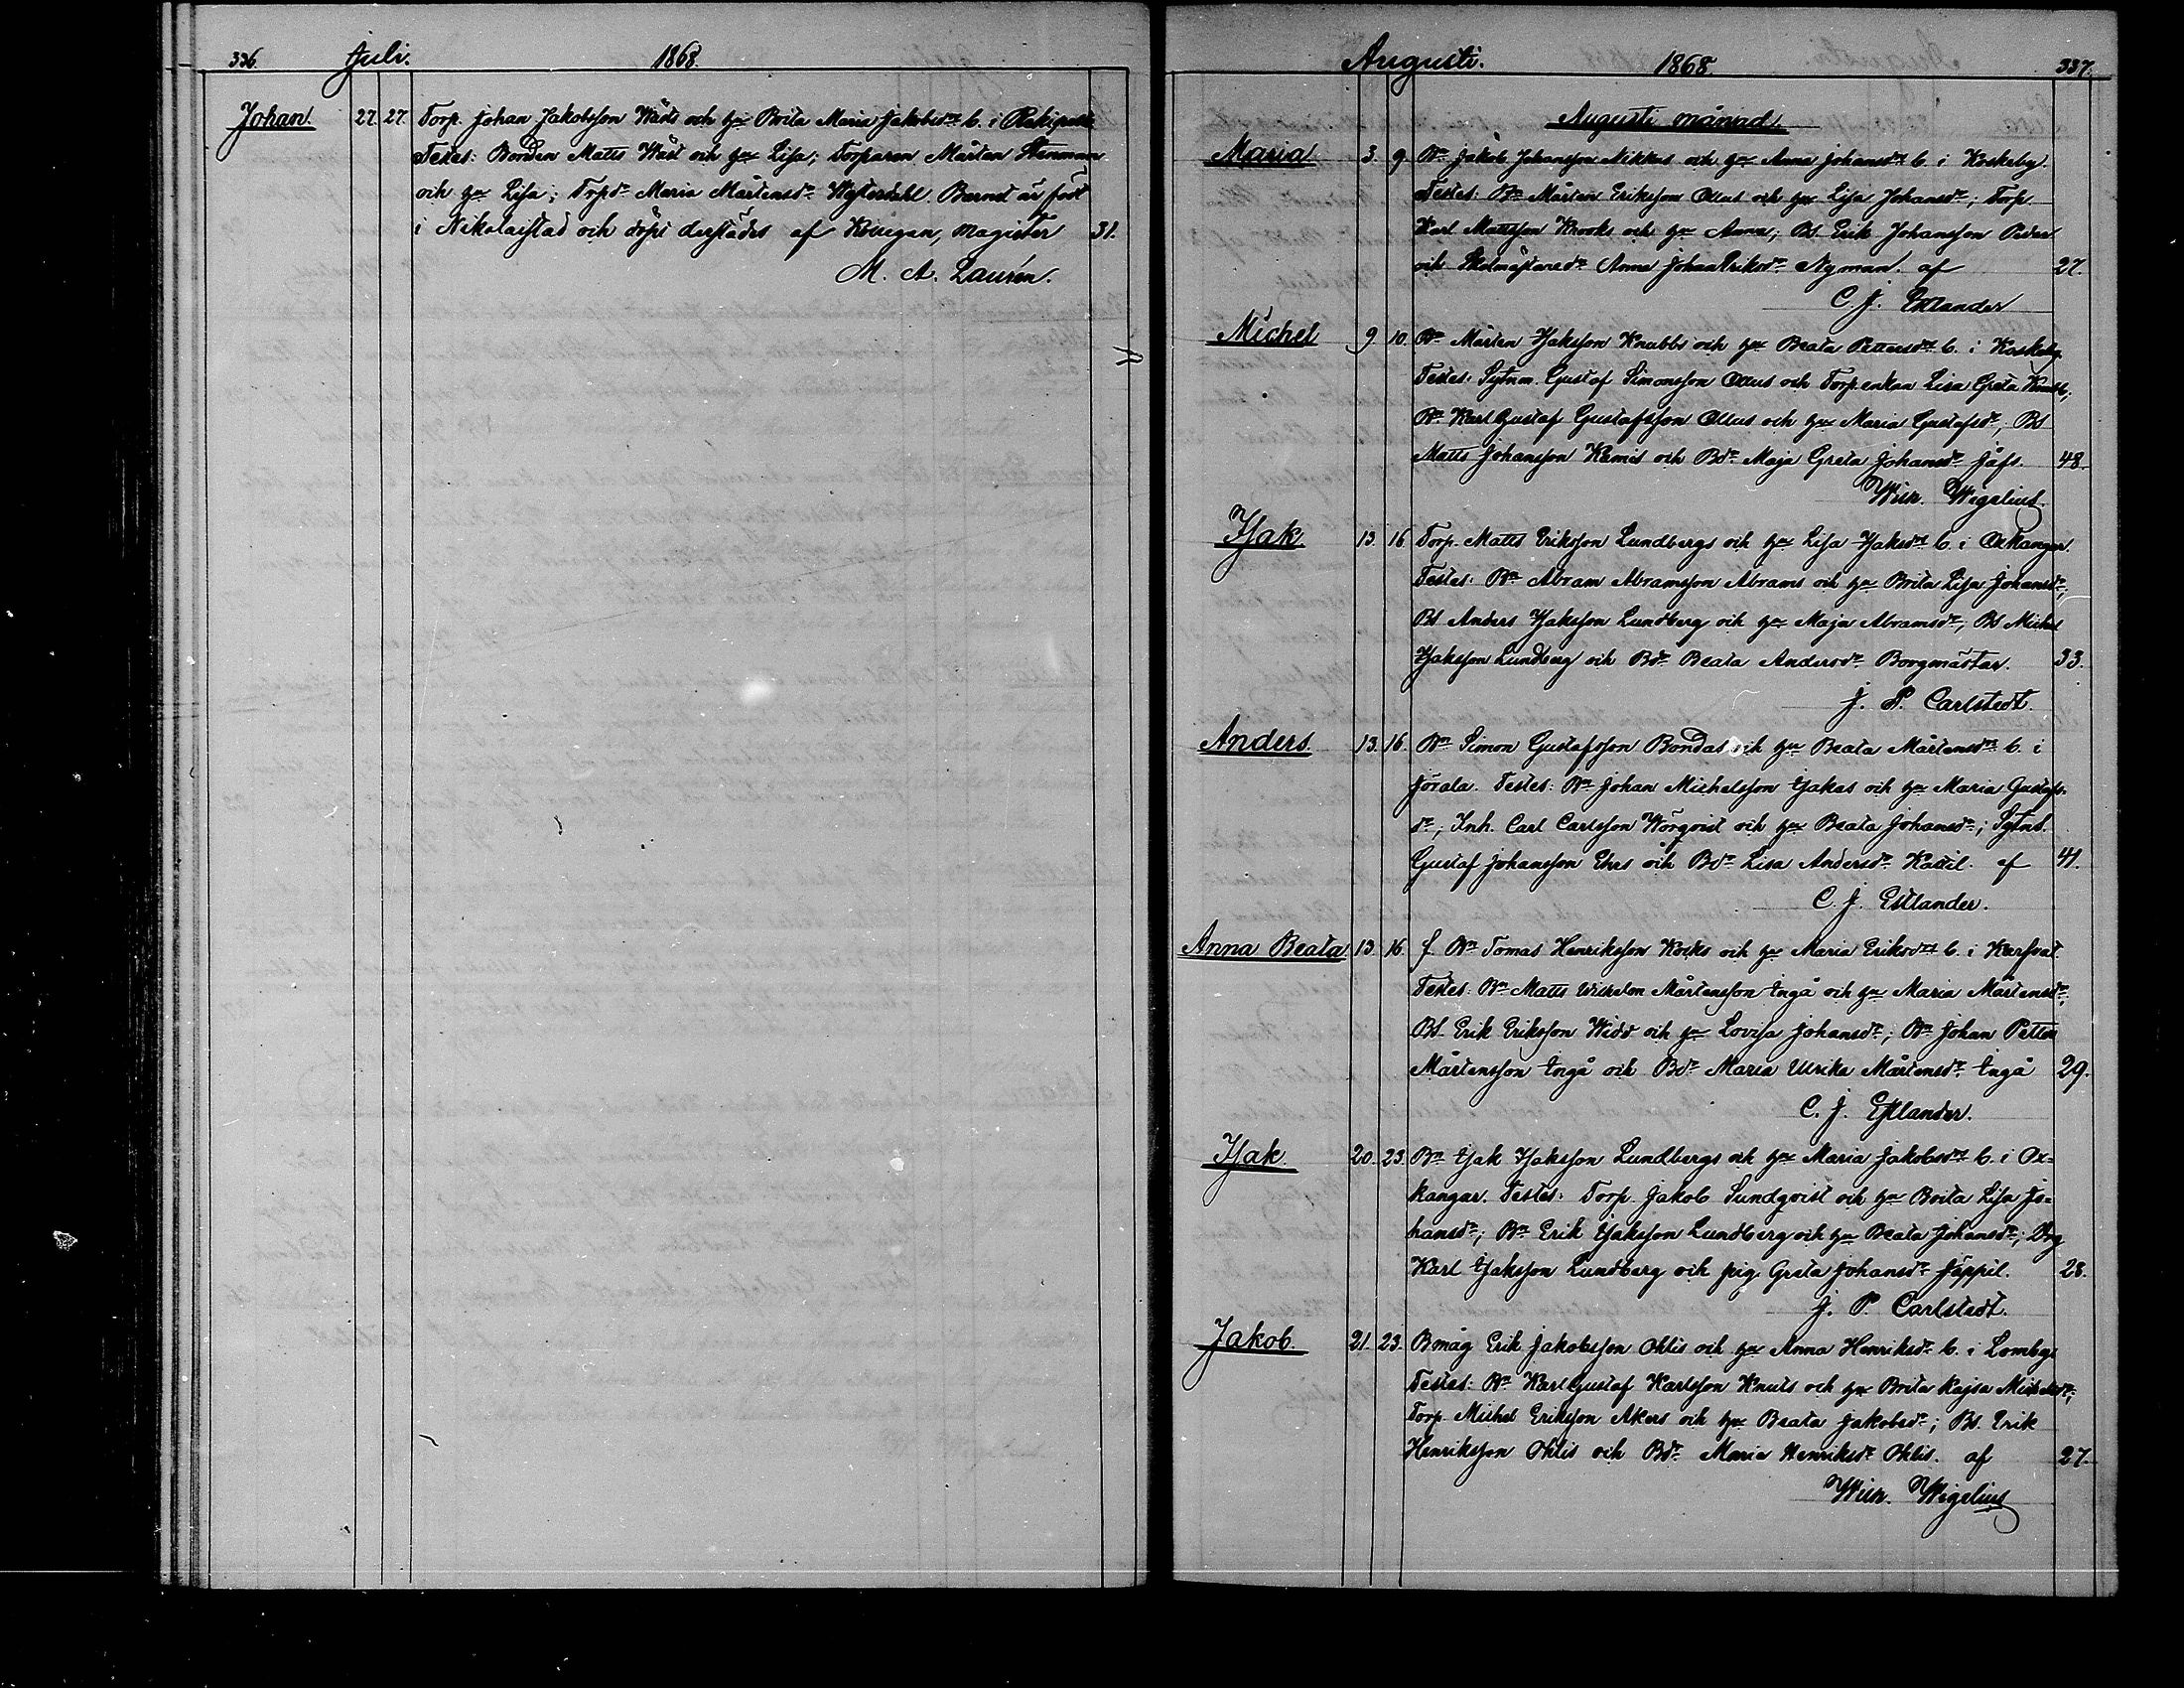 336. Juli. 1868.
Johan. 27. 27. Torp. Johan Jakobsson Wäst och hu Brita Maria Jakobsdr b. i
Testes: Bonden Matts Wäst och hu Lisa; Torparen Mårten Stenman
och hu Lisa; Trpdr Maria Mårtensdr Barnet är född
i Nikolaistad och döpt derstädes af Kollegan, Magister 31.
M. A. Laurén.
Augusti. 1868. 337.
Augusti månad.
Maria 3. 9. Bn Jakob Johansson Nikkus och hu Anna Johansdr b. i Koskeby.
Testes: Bn Mårten Eriksson Ollus och hu Lisa Johansdr; Torp.
Karl Mattsson Krooks och hu Anna; Bs. Erik Johansson Peder
och Skolmästaredr Anna Johan Eriksdr Nyman. af 27.
C. J. Estlander
Michel 9. 10. Bn Mårten Isaksson Knubbs och hu Beata Pettersdr b. i Koskeby.
Testes: Sytnm. Gustaf Simonsson Ollus och Torp.enkan Lisa Greta Knubb;
Bn Karl Gustaf Gustafsson Ollus och hu Maria Gustafsdr; Bs
Matts Johansson Kamis och Bdr Maja Greta Johansdr Jåfs. 48.
Wilh. Wegelius.
Isak. 13. 16. Torp. Matts Eriksson Lundbergs och hu Lisa Isaksdr b. i Oxkangar.
Testes: Bn Abram Abramsson Abrams och hu Brita Lisa Johansdr;
Bs Anders Isaksson Lundberg och hu Maja Abramsdr; Bs Michel
Isaksson Lundberg och Bdr Beata Andersdr Borgmästar. 33.
J. P. Carlstedt.
Anders. 13. 16. Bn Simon Gustafsson Bondas och hu Beata Mårtensdr b. i
Jörala. Testes: Bn Johan Michelsson Isakas och hu Maria Gustafs-
dr; Inh. Carl Carlsson Wörqvist och hu Beata Johansdr; Sytns.
Gustaf Johansson Ehrs och Bdr Lisa Andersdr Kattil. af 41.
C. J. Estlander.
Anna Beata 13. 16. f. Bn Tomas Henriksson Kocks och hu Maria Eriksdr b. i Karfsat.
Testes: Bn Matts Wilhelm Mårtensson Ingå och hu Maria Mårtensdr;
Bs. Erik Eriksson Widd och hu Lovisa Johansdr; Bn Johan Petter
Mårtensson Ingå och Bdr Maria Ulrika Mårtensdr Ingå 29.
C. J. Estlander.
Isak. 20. 23. Bn Isak Isaksson Lundbergs och hu Maria Jakobsdr b. i Ox-
kangar. Testes: Torp. Jakob Sundqvist och hu Brita Lisa Jo-
hansdr; Bn Erik Isaksson Lundberg och hu Beata Johansdr; Drg
Karl Isaksson Lundberg och pig. Greta Johansdr Jöppil. 28.
J. P. Carlstedt.
Jakob. 21. 23. Bmåg Erik Jakobsson Ohlis och hu Anna Henriksdr b. i Lomby.
Testes: Bn Karl Gustaf Karlsson Knuts och hu Brita Kajsa Michelsdr;
Torp. Michel Eriksson Akers och hu Beata Jakobsdr; Bs. Erik
Henriksson Ohlis och Bdr Maria Henriksdr Ohlis. af 27.
Wilh. Wegelius